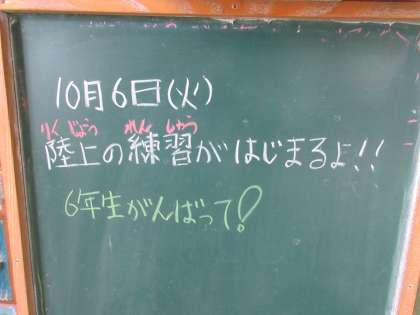 10月6日(火)
りくじょう れんしゅう
陸上の練習がはじまるよ!!
6年生がんばって!